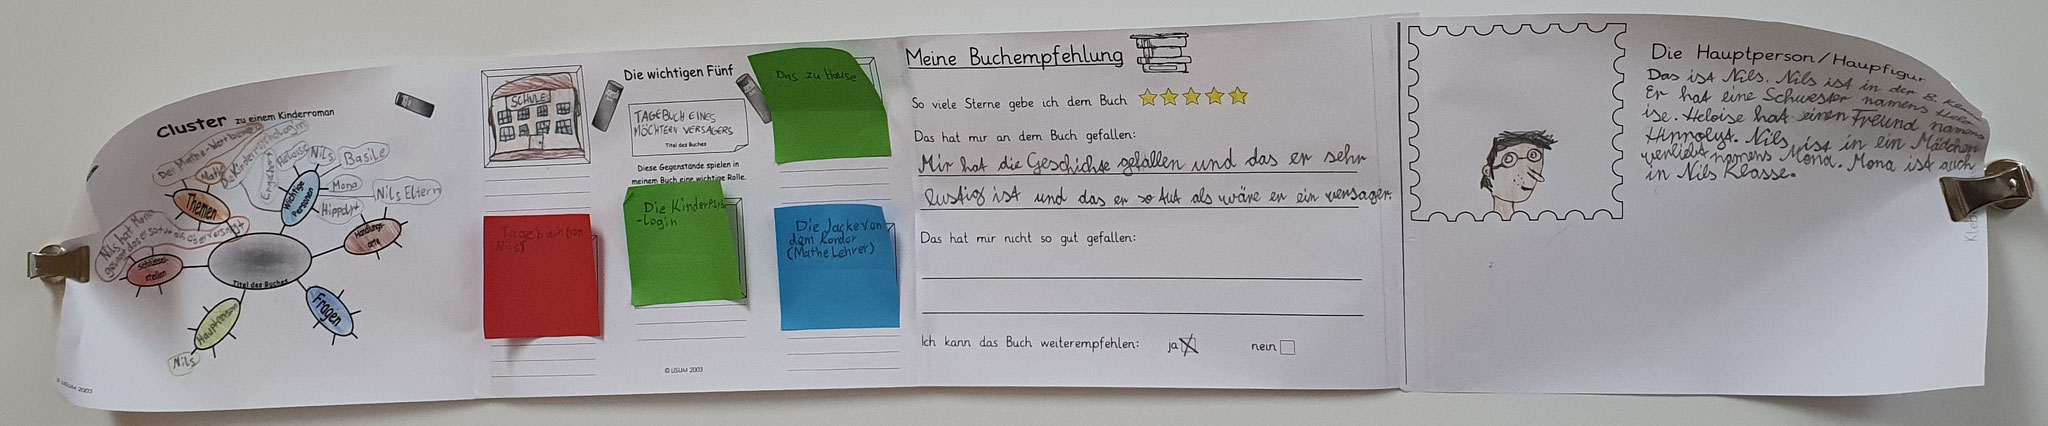 Cluster zu einem Kinderroman
Nils
Basile
Heloise
Mona
Hippolyt
Nils Eltern
Themen
Wichtige Personen
Handlungs-
orte
Schlüssel-
stellen
Titel des Buches
Hauptperson
Fragen
Nils
© LISUM 2003
SCHULE
Die wichtigen Fünf
TAGEBUCH EINES
MÖCHTERN VERSAGERS
Titel des Buches
Diese Gegenstände spielen in
meinem Buch eine wichtige Rolle.
Das zu Hause
Tagebuch (von
Nils)
Die Kinderpsyo
-login
Die Jacke von
dem Kondor
(Mathe Lehrer)
© LISUM 2003
Meine Buchempfehlung
So viele Sterne gebe ich dem Buch
Das hat mir an dem Buch gefallen:
Mir hat die Geschichte gefallen und das er sehr
lustig ist und das er so tut als wäre er ein versager.
Das hat mir nicht so gut gefallen:
Ich kann das Buch weiterempfehlen: ja nein
Die Hauptperson/Haupfigur
Das ist Nils. Nils ist in der 8.
Er hat eine Schwester namens Helo
ise. Heloise hat einen freund namens
Hippolyt. Nils ist in ein Mädchen
verliebt namens Mona. Mona ist auch
in Nils Klasse.